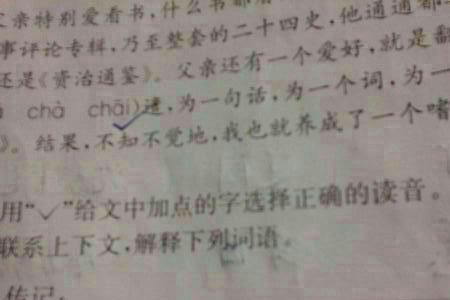 父亲特别爱看书,什么书都看
事评论专辑,乃至整套的二十四史,他通通都
还是《资治通鉴》。父亲还有一个爱好,就是翻
chà chāi)遣,为一句话,为一个词,为一
》。结果,不知不觉地,我也就养成了一个嗜
用“✓”给文中加点的字选择正确的读音。
联系上下文,解释下列词语。
传记: